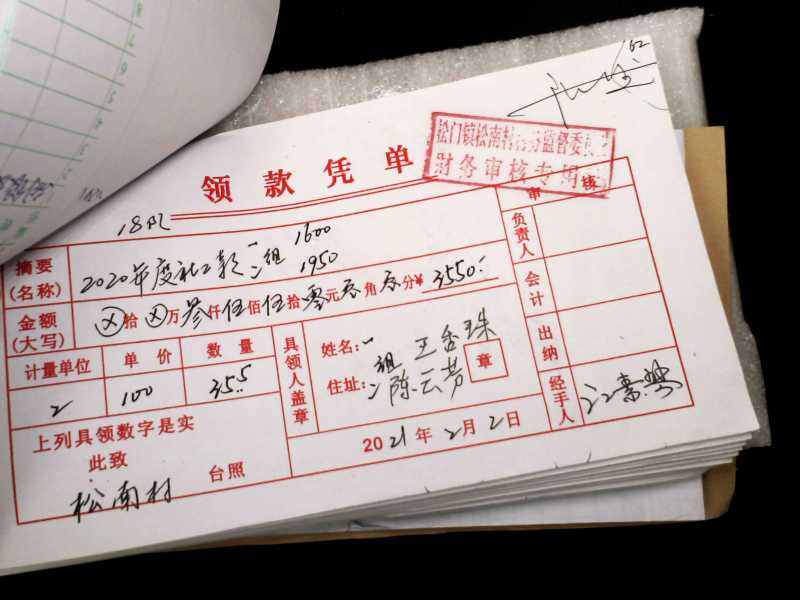 162
松门镇松南村 监督委
财务审核专用
领款凭单
审核
摘要
(名称)
2020年度社工款 一组 1600
二组 1950
金额
(大写)
⊗拾⊗万叁仟伍佰伍拾零元零角零分¥3550:-
负责人
会计
出纳
经手人
计量单位 单价 数量
2 100 35.5
具领人盖章
姓名:一组 王香珠
住址:二 陈云芳
章
上列具领数字是实
此致
台照
松南村
2021年2月2日